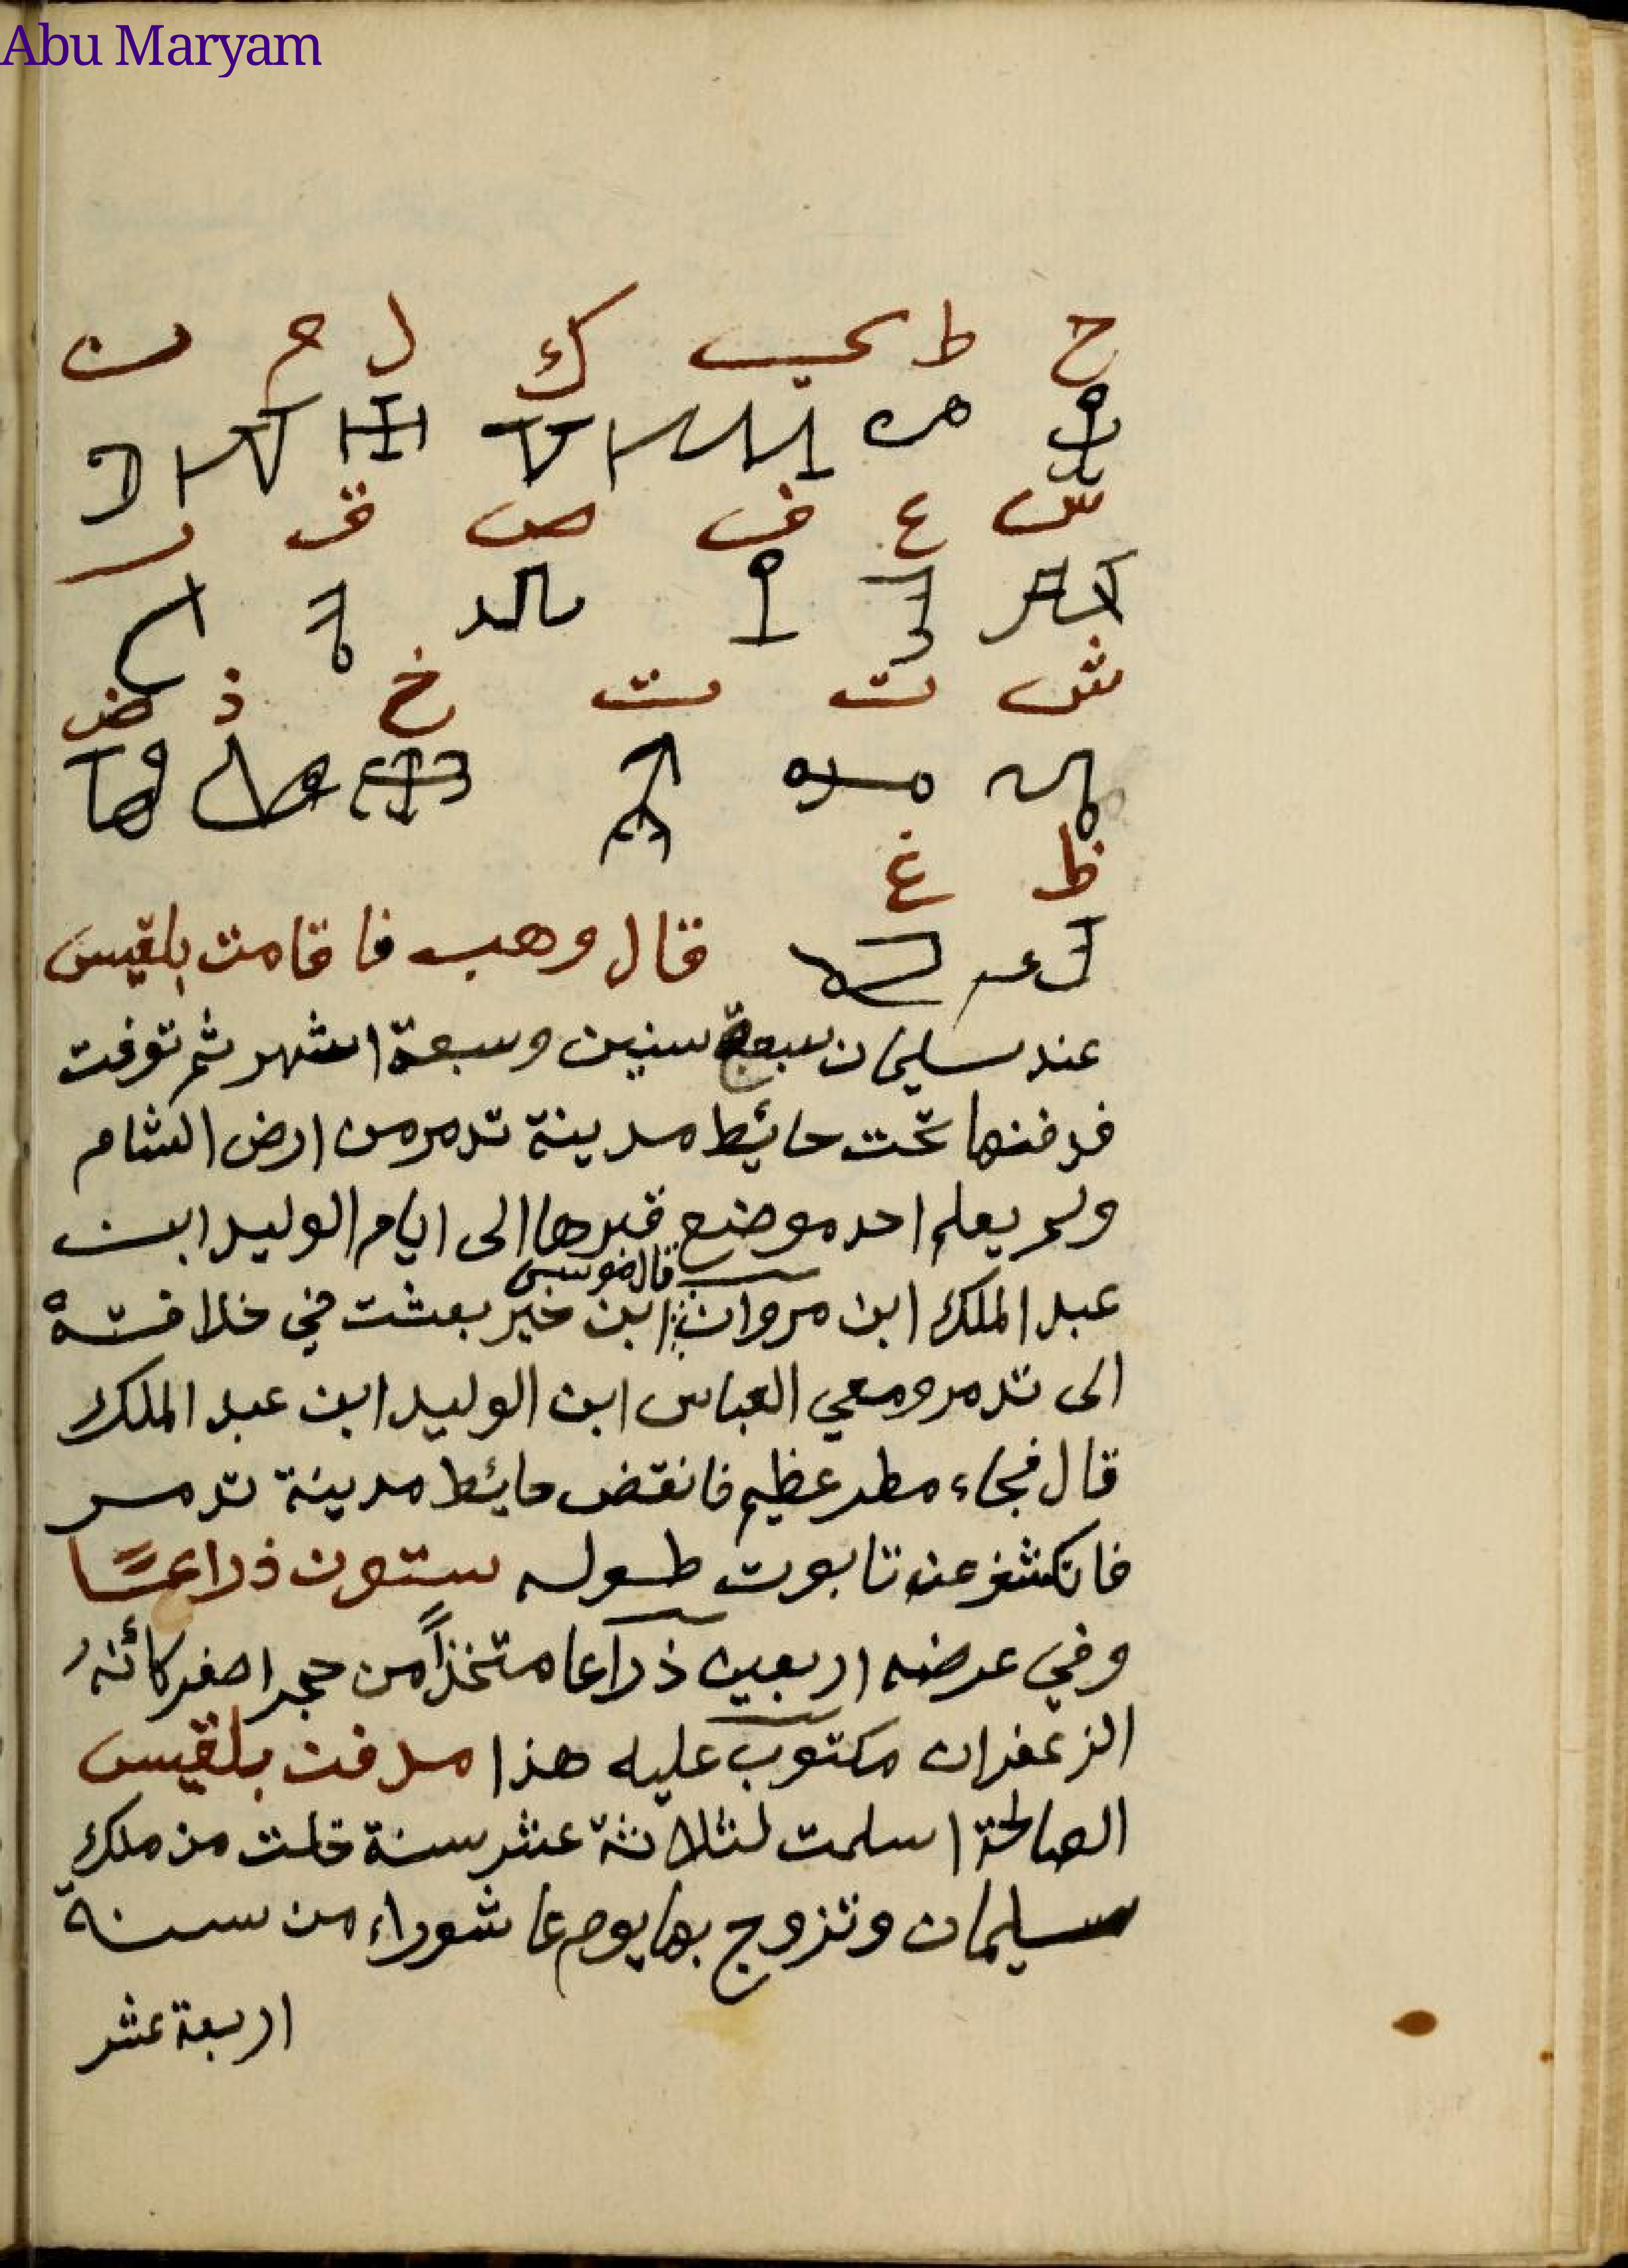 Abu Maryam
ح ط ي ك ل م ن
س ع ف ص ق ر
ش ت ث خ ذ ض
ظ غ
قال وهب فاقامت بلقيس
عند سليمان سبعة سنين وسبعة اشهر ثم توفت
فدفنها تحت حائيط مدينة تدمر من ارض الشام
ولم يعلم احد موضع قبرها الى ايام الوليد ابن
قال موسى
عبد الملك ابن مروان ابن خير بعثت في خلافته
الى تدمر ومعي العباس ابن الوليد ابن عبد الملك
قال فجاء مطر عظيم فانقض حائيط مدينة تدمر
فانكشف عن تابوت طوله ستون ذراعًا
وفي عرضه اربعين ذراعا متخذاً من حجر اصفر كأنهُ
الزعفران مكتوب عليه هذا مدفن بلقيس
الصالحة اسلمت لثلاثة عشر سنة خلت من ملك
سليمان وتزوج بها يوم عاشوراء من سنة
اربعة عشر